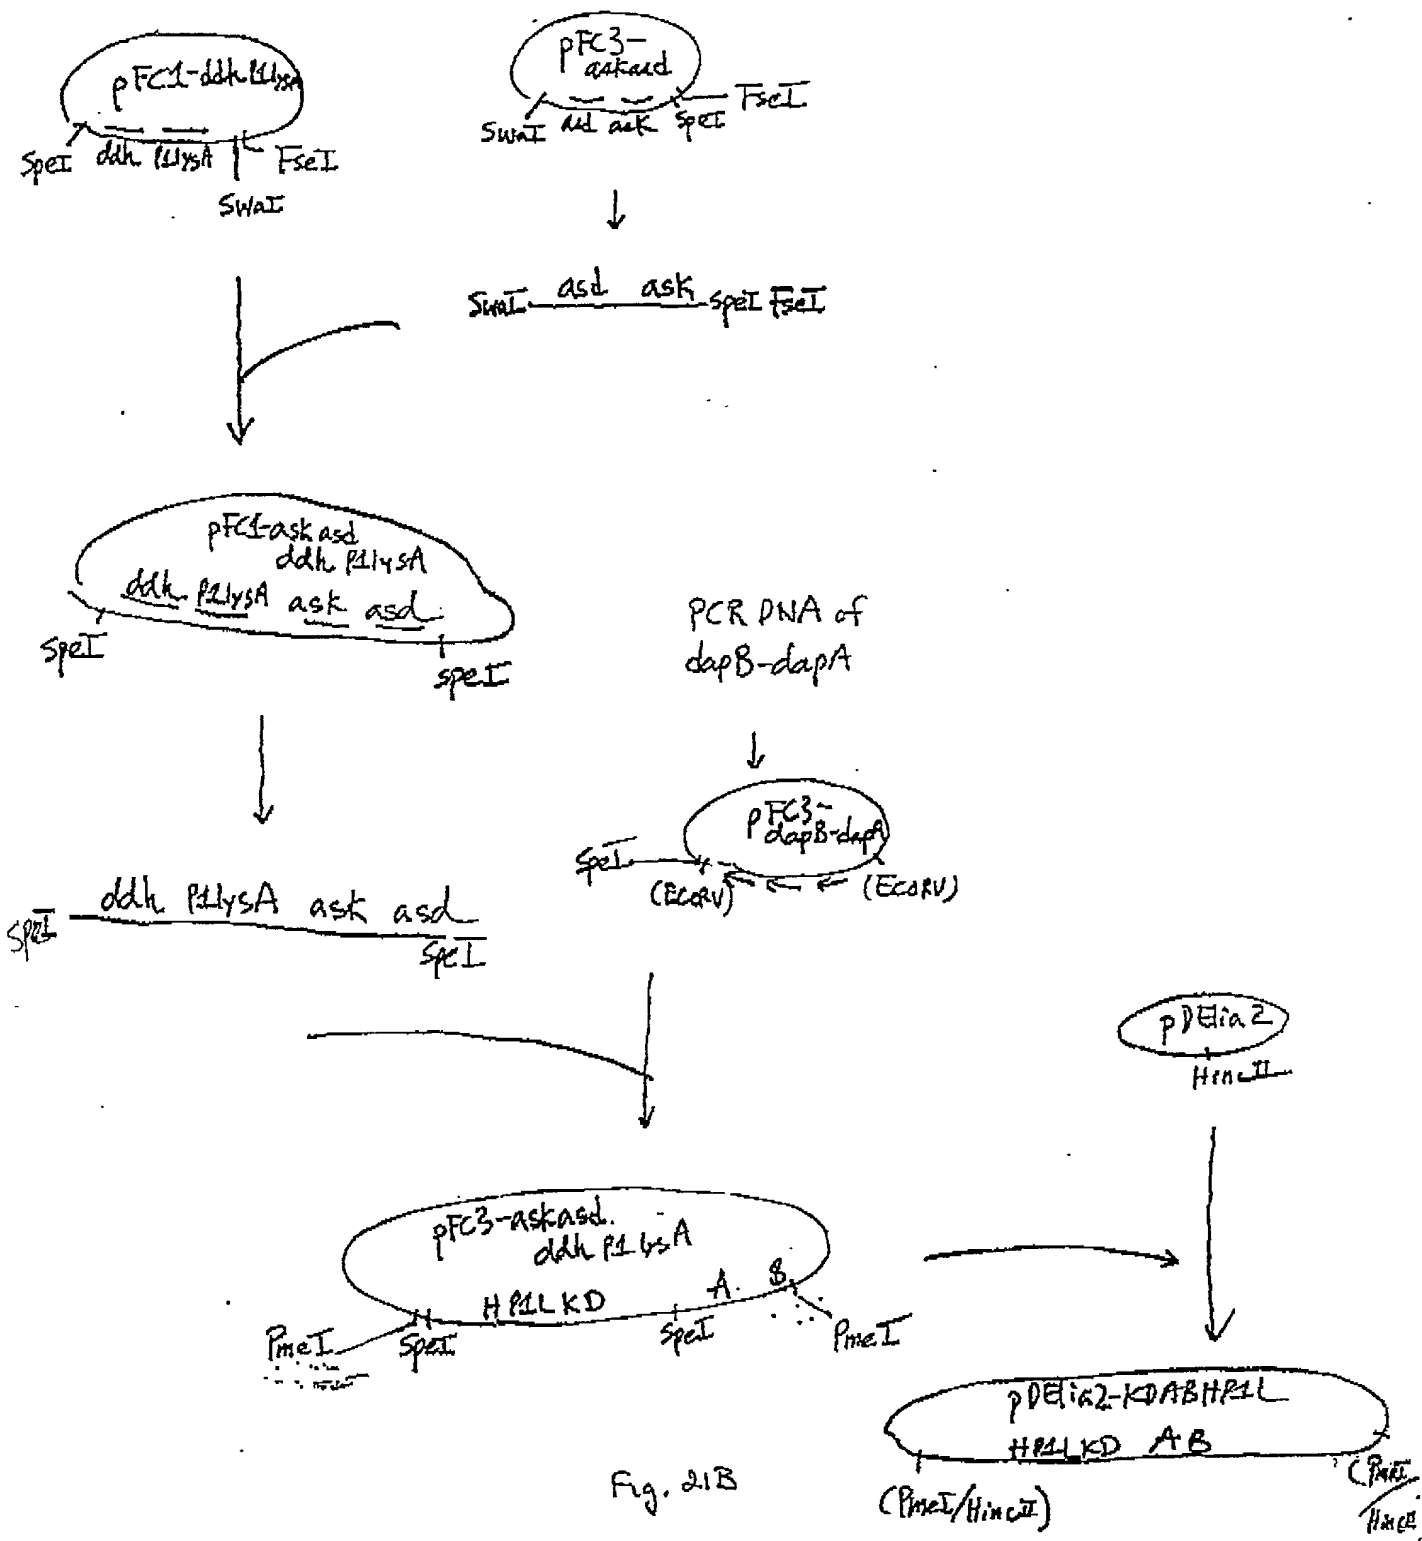 pFC1-ddh P1lysA
SpeI ddh P1lysA FseI
SwaI
pFC3-
askasd
SwaI asd ask SpeI FseI
SwaI asd ask SpeI FseI
pFC1-ask asd
ddh P1lysA
ddh P1lysA ask asd
SpeI
speI
PCR DNA of
dapB-dapA
pFC3-
dapB-dapA
SpeI
(EcoRV) (EcoRV)
ddh P1lysA ask asd
SpeI
SpeI
pDElia2
HincII
pFC3-askasd
ddh P1lysA
HP1LKD A B
PmeI SpeI SpeI PmeI
pDElia2-KDABHP1L
HP1LKD AB
(PmeI/HincII)
(PmeI/HincII
Fig. 21B